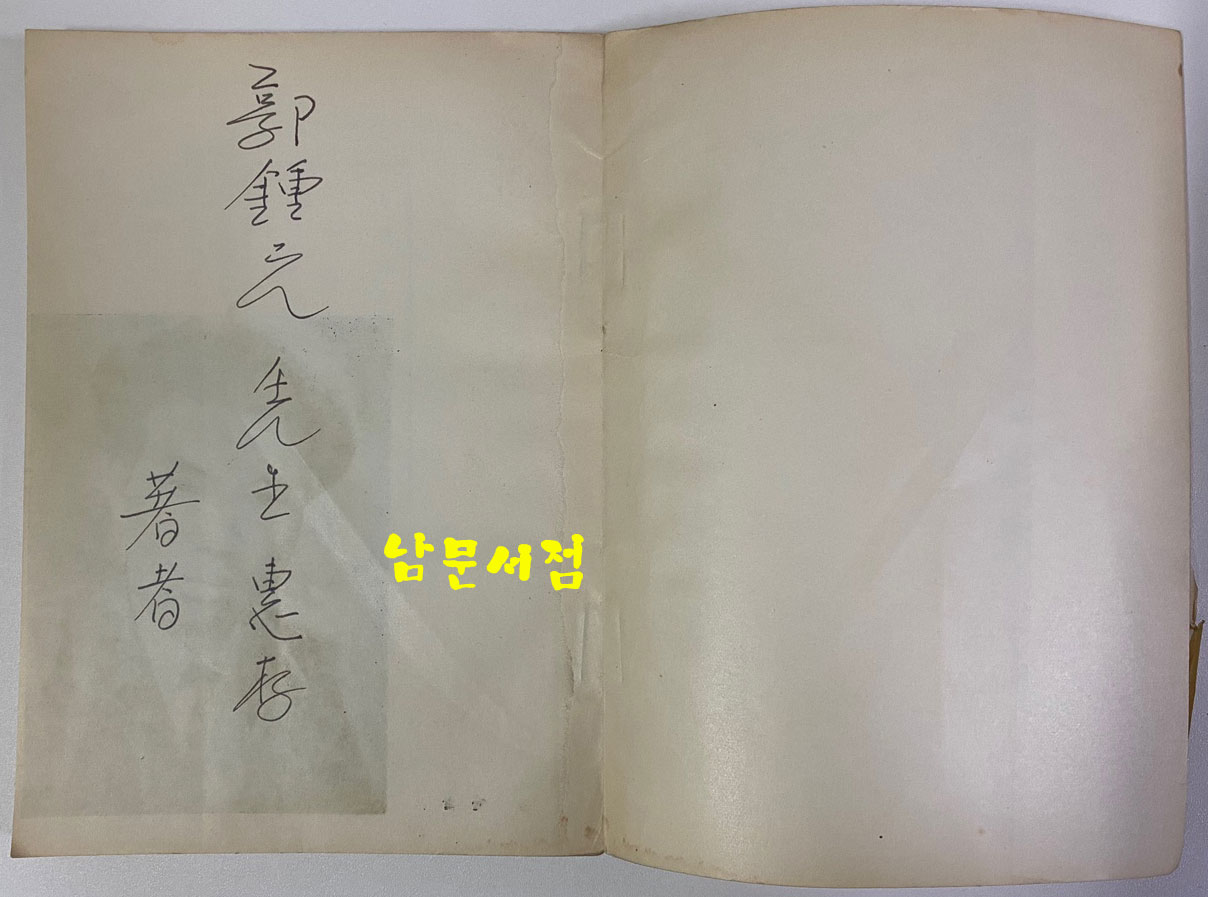 郭鍾元 先生 惠存
著者
남문서점